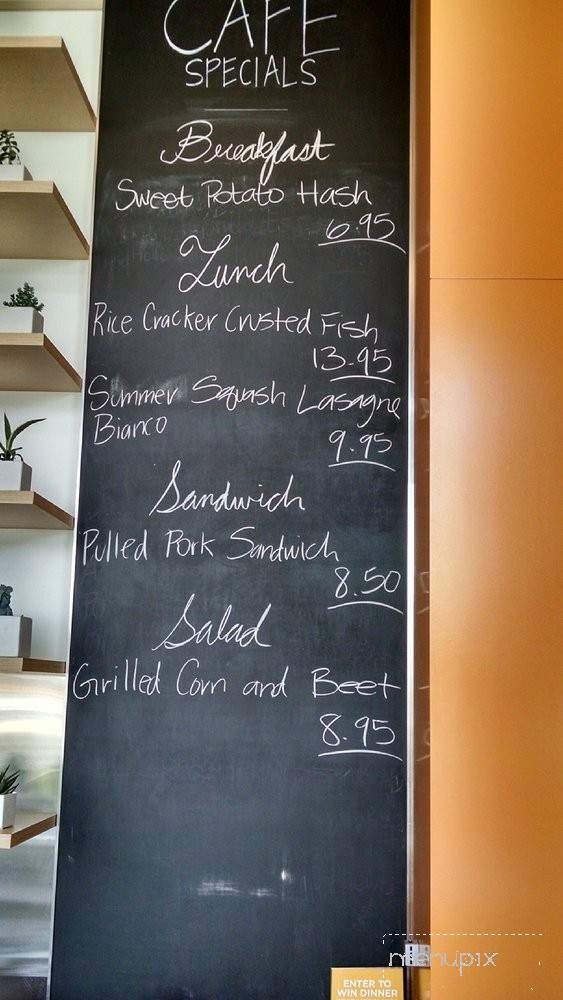 CAFE
SPECIALS
Breakfast
Sweet Potato Hash
6.95
Lunch
Rice Cracker Crusted Fish
13.95
Summer Squash Lasagne
Bianco
9.95
Sandwich
Pulled Pork Sandwich
8.50
Salad
Grilled Corn and Beet
8.95
menupix
ENTER TO
WIN DINNER